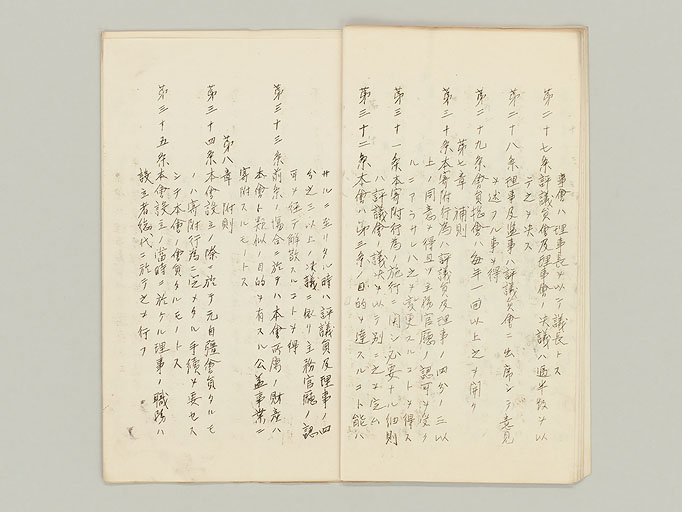 事會ハ理事長ヲ以テ議長トス
第二十七条評議員會及理事會ノ決議ハ過半数ヲ以
テ之ヲ決ス
第二十八条理事及監事ハ評議員會ニ出席シテ意見
ヲ述フル事ヲ得
第二十九条會員揔會ハ毎年一回以上之ヲ開ク
第七章 補則
第三十条本寄附行為ハ評議員及理事ノ四分ノ三以
上ノ同意ヲ得且ツ主務官廳ノ認可ヲ受ク
ルニアラサレハ之ヲ変更スルコトヲ得ス
第三十一条本寄附行為ノ施行ニ関シ必要ナル細則
ハ評議會ノ議決ヲ以テ別ニ之ヲ定ム
第三十二条本會ハ第三条ノ目的ヲ達スルコト能ハ
サルニ至リタル時ハ評議員及理事ノ四
分之三以上ノ決議ニ依リ主務官廳ノ認
可ヲ経テ解散スルコトヲ得
第三十三条前条ノ場合ニ於テハ本會所属ノ財産ハ
本會ト類似ノ目的ヲ有スル公益事業ニ
寄附スルモートス
第八章 附則
第三十四条本會設立ノ際ニ於テ元自彊會員タルモ
ノハ寄附行為ニ定メタル手續ヲ要セス
シテ本會ノ會員タルモートス
第三十五条本會設立ノ當時ニ於ケル理事ノ職務ハ
設立者総代ニ於テ之ヲ行フ